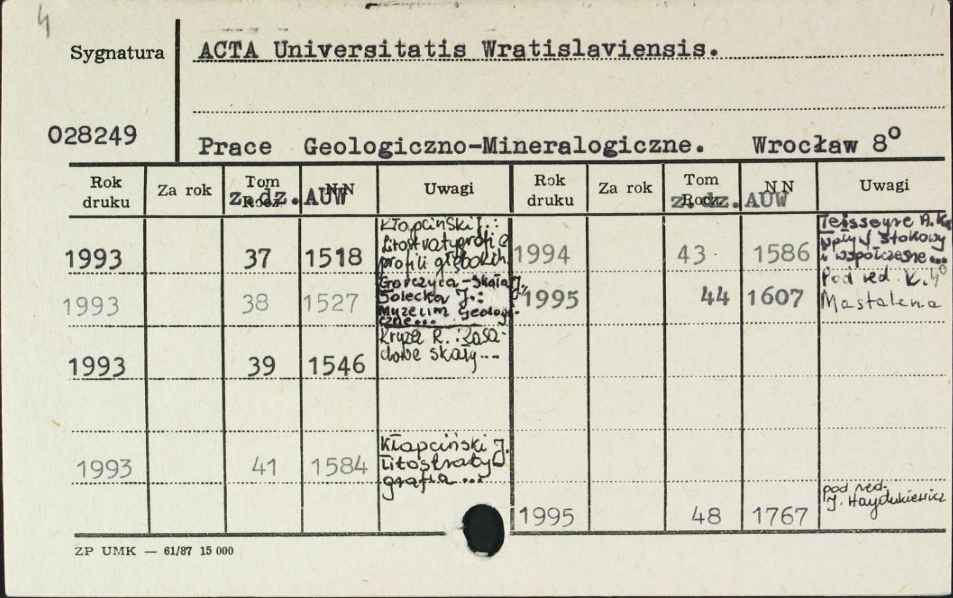 4
Sygnatura
ACTA Universitatis Wratislaviensis.
028249
Prace Geologiczno-Mineralogiczne. Wrocław 8°
Rok druku Za rok Tom Rocz. z.dz. NN AUW Uwagi Rok druku Za rok Tom Rocz. z.dz. NN AUW Uwagi
Kłapciński J.:
Litostratygrafia
profili głębokich
1993 37 1518
Teisseyre A.K.
wpływ stokowy
współczesne...
1994 43 1586
Gorczyca-Skała J.,
Solecka J.:
Muzeum Geologi-
czne...
1993 38 1527
Pod red. K.
Mastalerza
1995 44 1607
Kryza R.: Zasa-
dowe skały...
1993 39 1546
Kłapciński J.
Litostraty-
grafia...
1993 41 1584
pod red.
J. Haydukiewicz
1995 48 1767
ZP UMK — 61/87 15 000